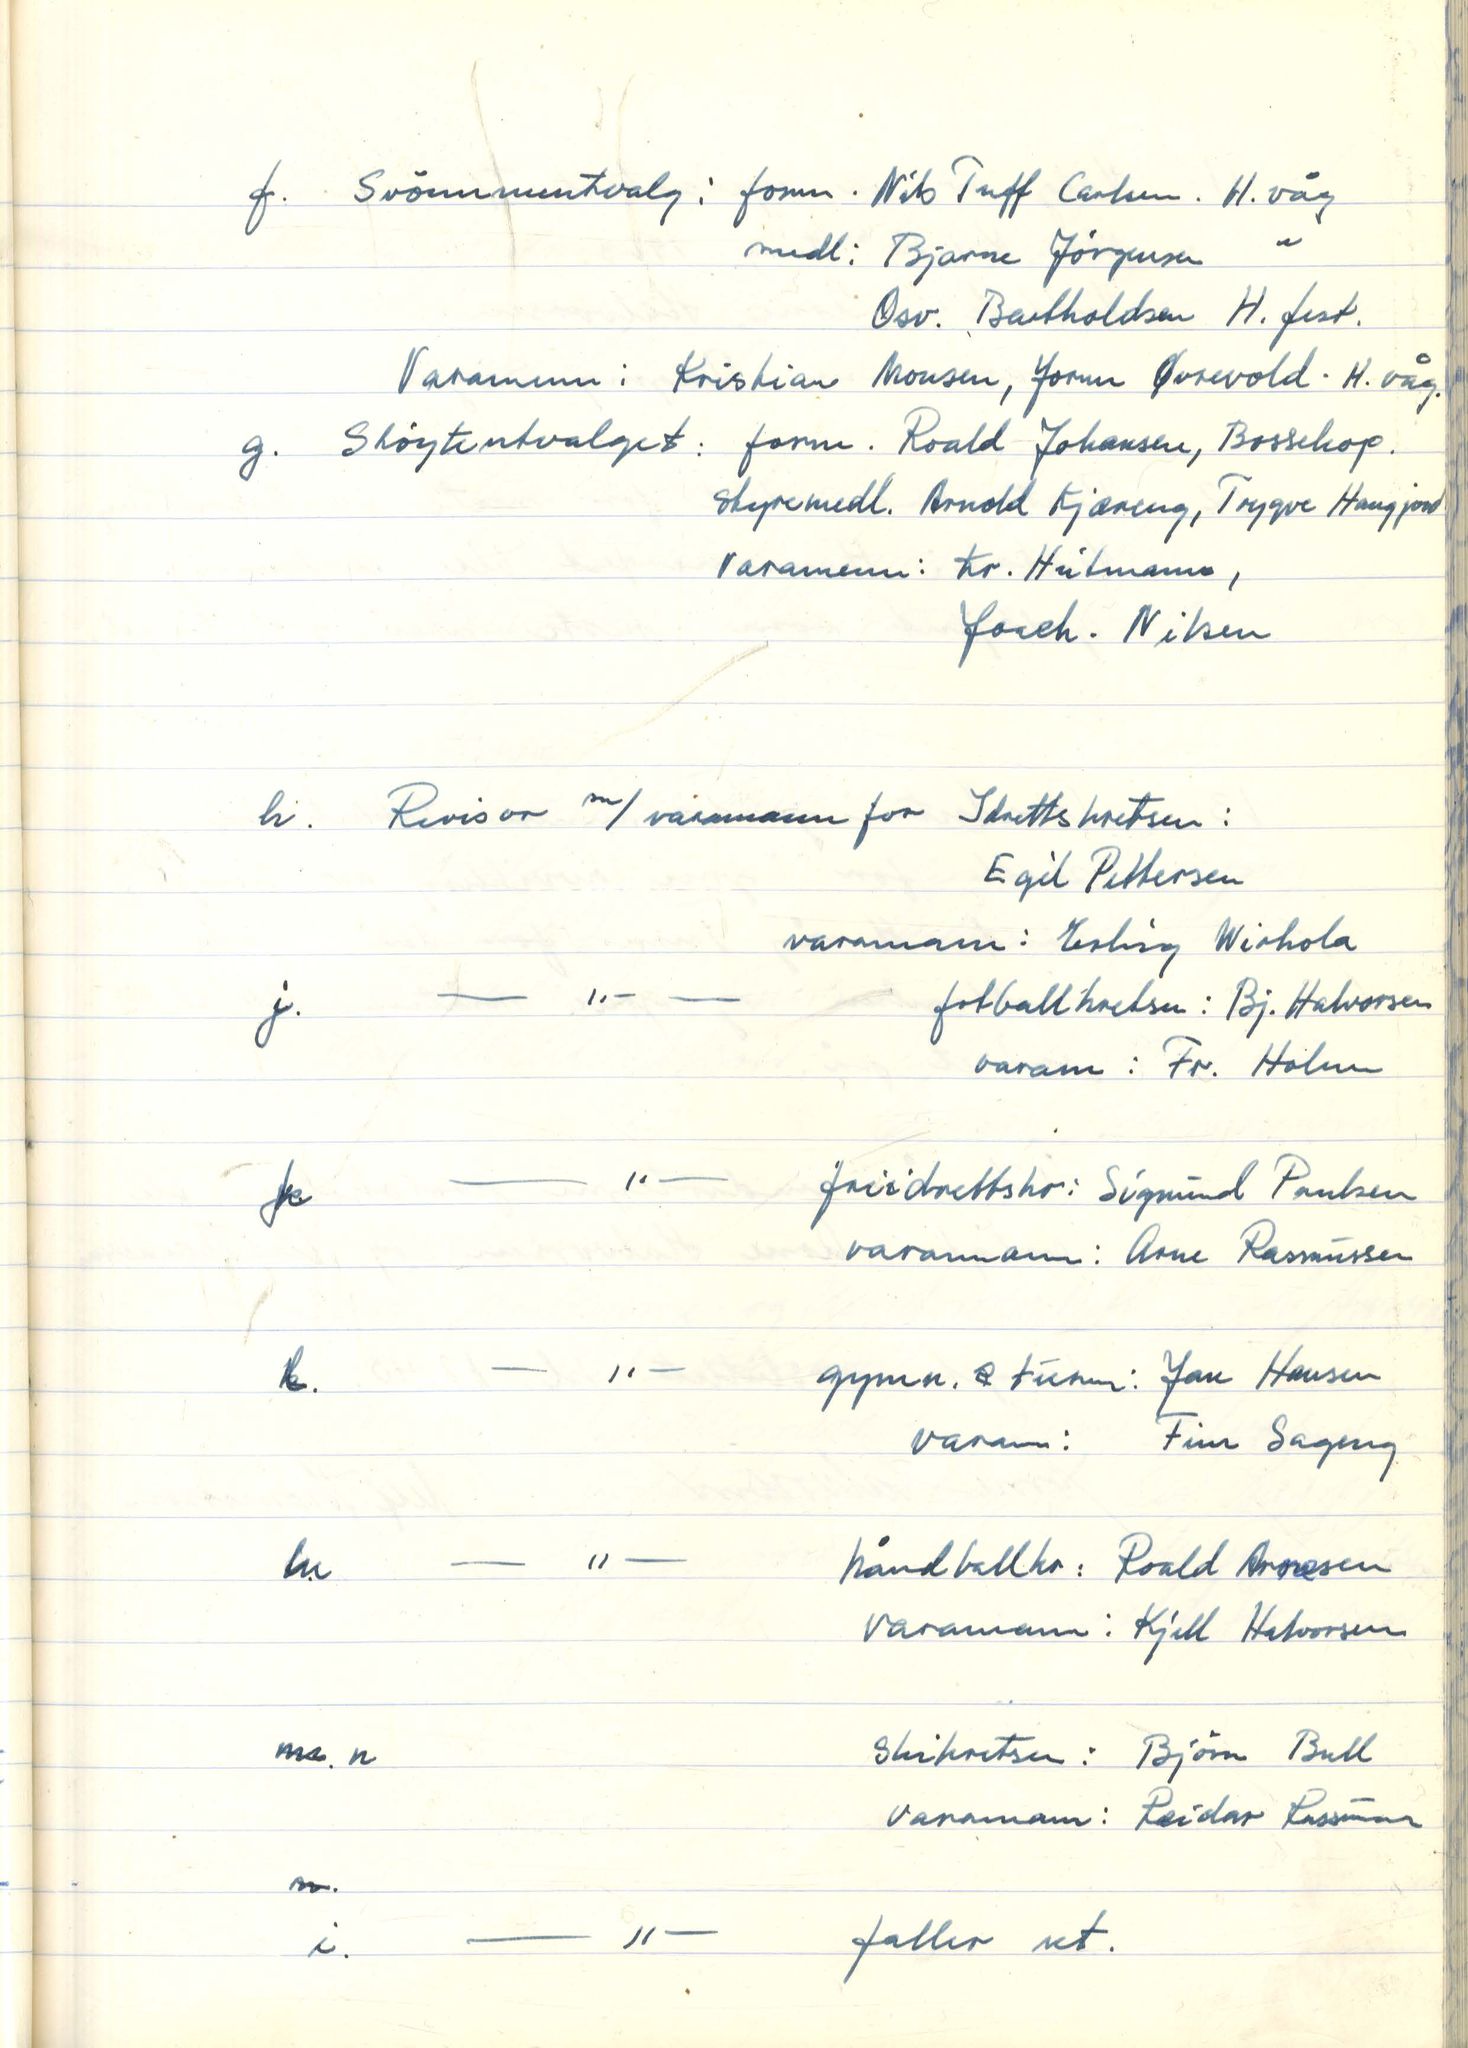 f. Svömmeutvalg: form. Nils Tuff Carlsen. H.våg
medl: Bjarne Jörgensen "
Osv. Bertholdsen H.fest.
Varamenn: Kristian Monsen, Jorun Øvrevold - H.våg.
g. Sköyteutvalget: form. Roald Johansen, Bossekop.
Styremedl. Arnold Kjæreng, Trygve Haugjord
Varamenn: Kr. Heitmann,
Joach. Nilsen
h. Revisor m/ varamann for Idrettskretsen:
Egil Pettersen
varamann: Erling Wirkola
j. — „ — — fotballkretsen: Bj. Halvorsen
varam: Fr. Holm
k — „ — friidrettskr: Sigmund Paulsen
varamann: Arne Rasmussen
— „ — gymn. & turn: Jan Hansen
varam: Finn Sageng
— „ — håndballkr: Roald Arnesen
Varamann: Kjell Halvorsen
n skikretsen: Björn Bull
Varamann: Reidar
i. — „ — faller ut.